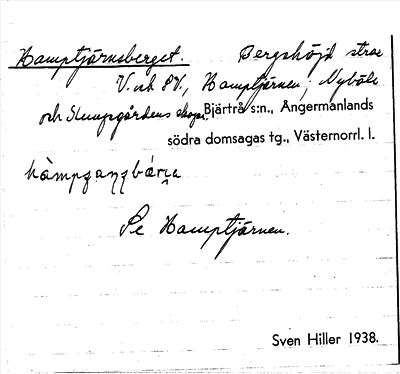 Kamptjärnsberget. Bergshöjd strax
V. och SV., Kamptjärnen; Nybole
och Slumpgårdens skogar, Bjärtrå s:n., Ångermanlands
södra domsagas tg., Västernorrl. l.
Se Kamptjärnen.
Sven Hiller 1938.